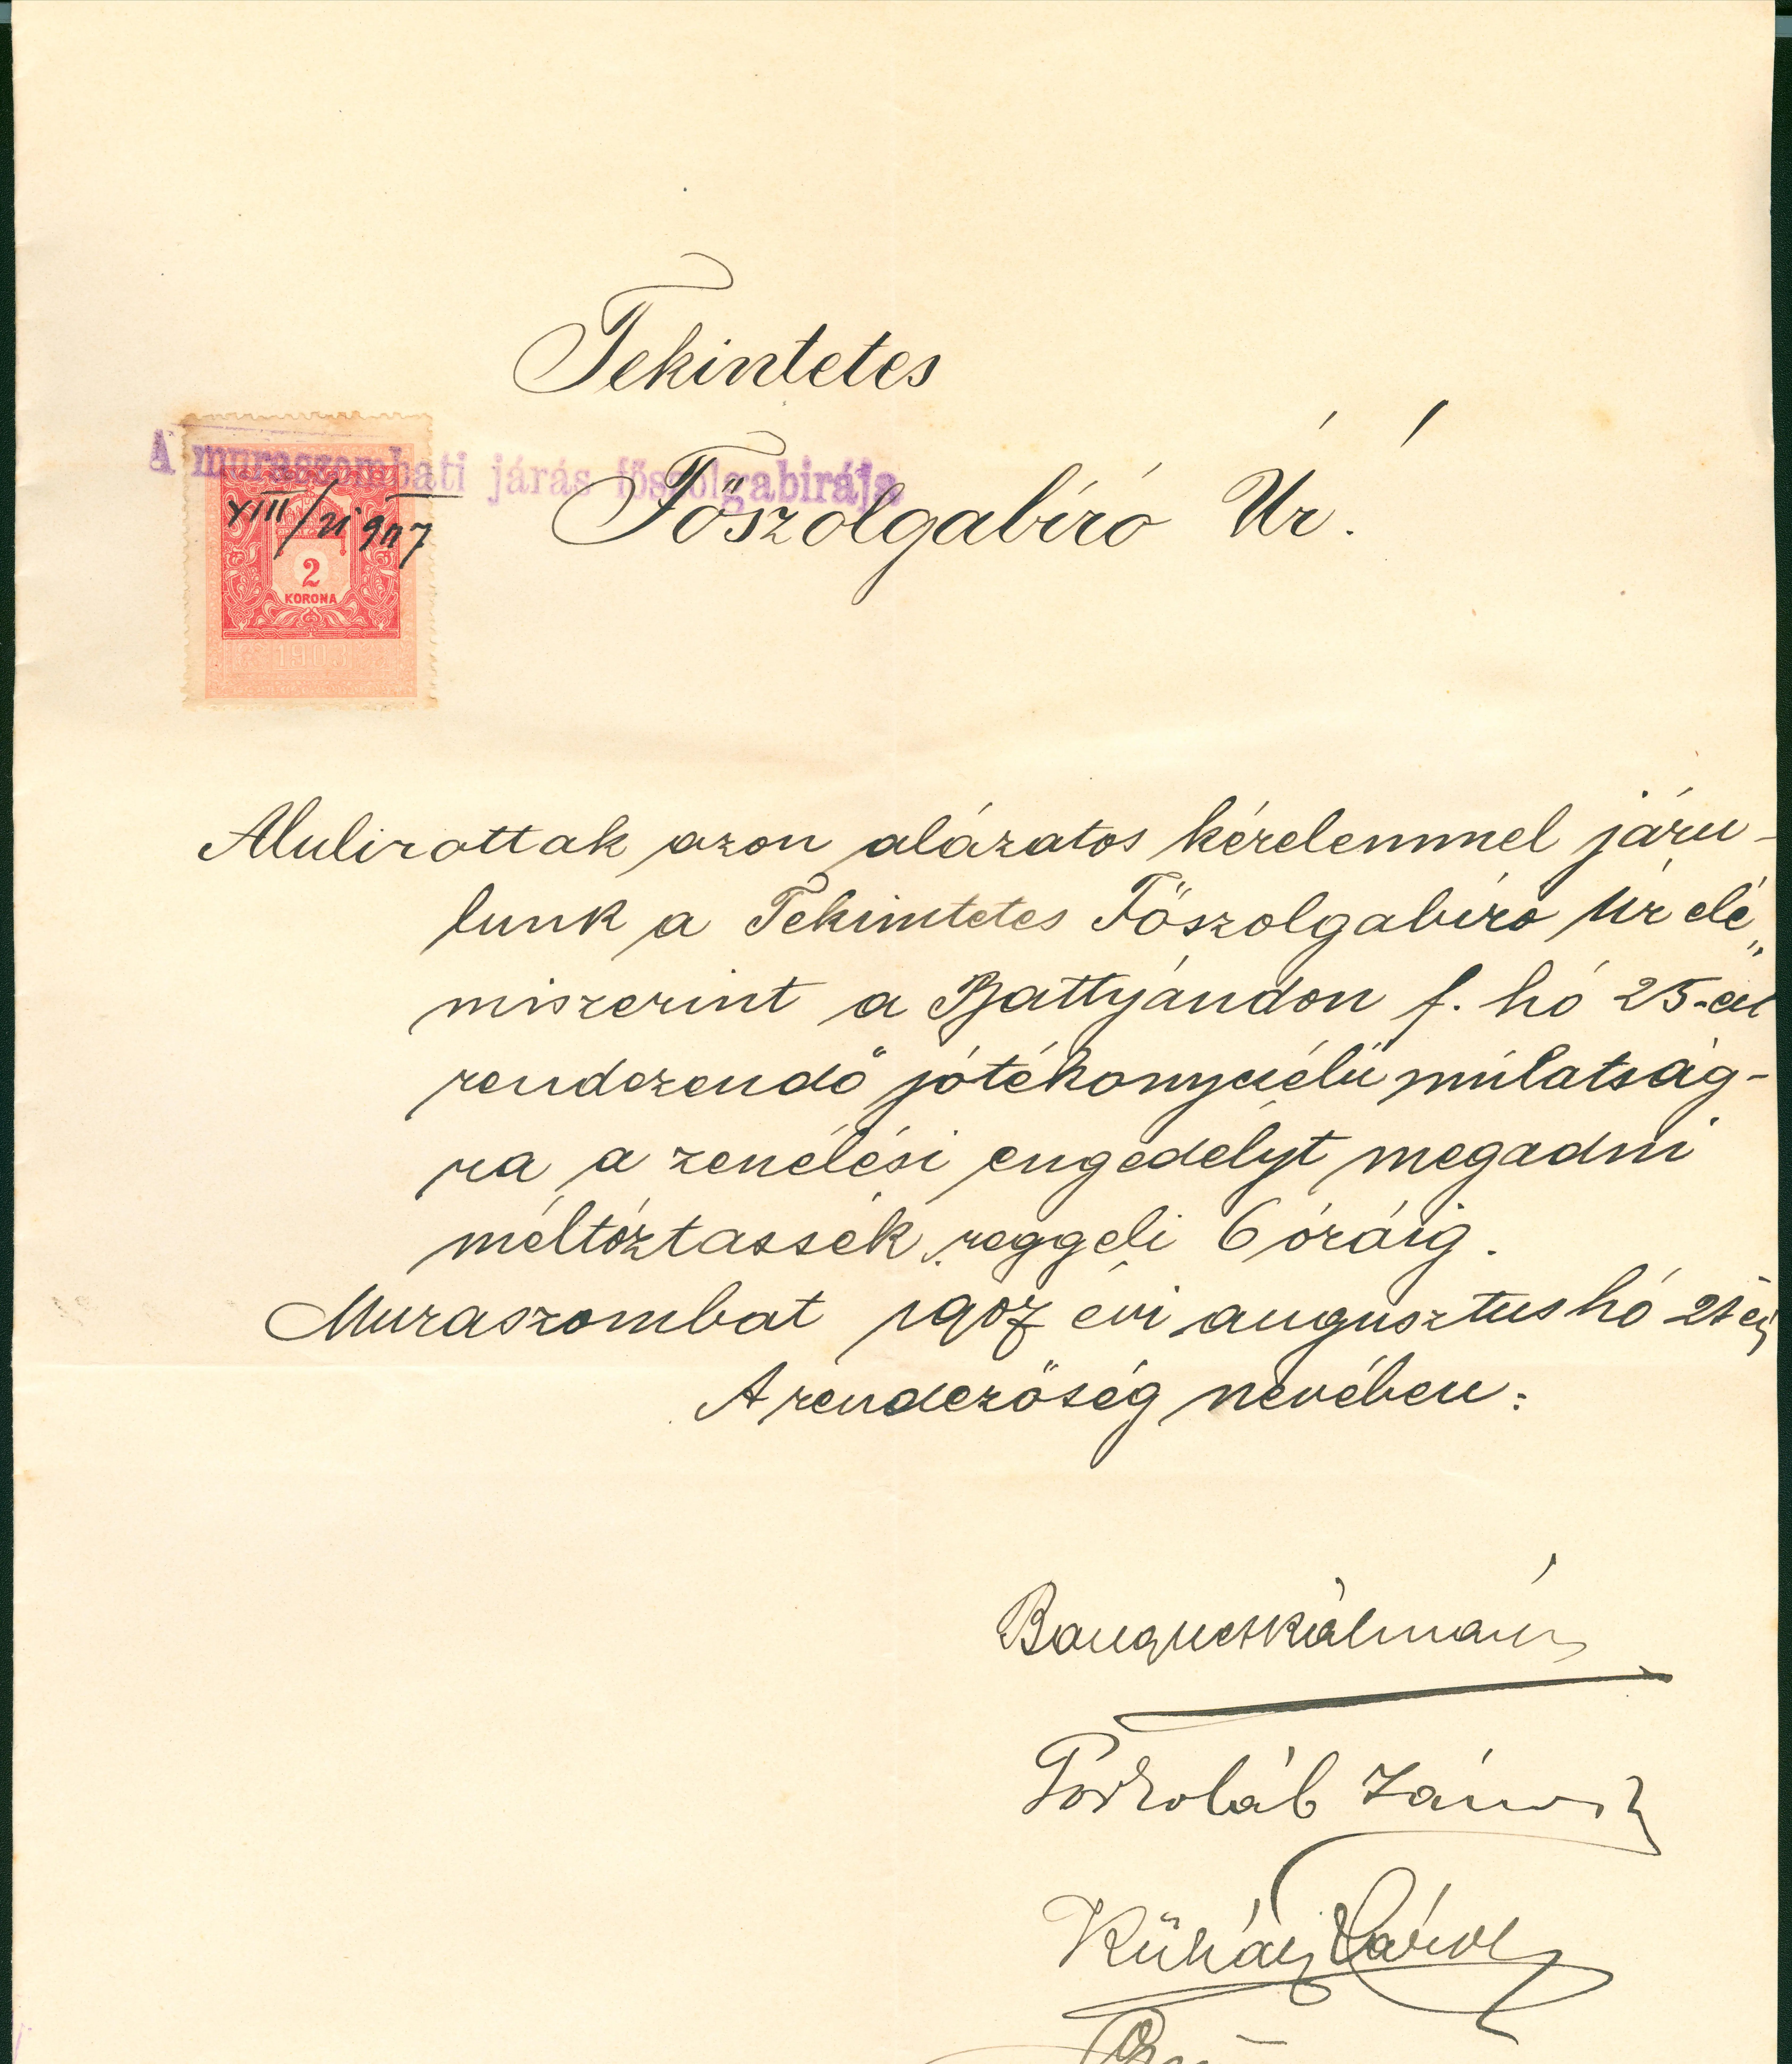 Tekintetes
A muraszombati járás főszolgabirája
Főszolgabíró Úr.
VIII/21 907
2
KORONA
1903
Alulirottak azon alázatos kérelemmel járu-
lunk a Tekintetes Főszolgabíró Úr elé
miszerint a Battyándon f. hó 25-én
rendezendő jótékonyczélú múlatság-
ra a zenélési engedélyt megadni
méltóztassék reggeli 6 óráig.
Muraszombat 1907 évi augusztus hó 21 én
A rendezőség nevében:
Kálmán
Poszoláb János
Kühár Károly